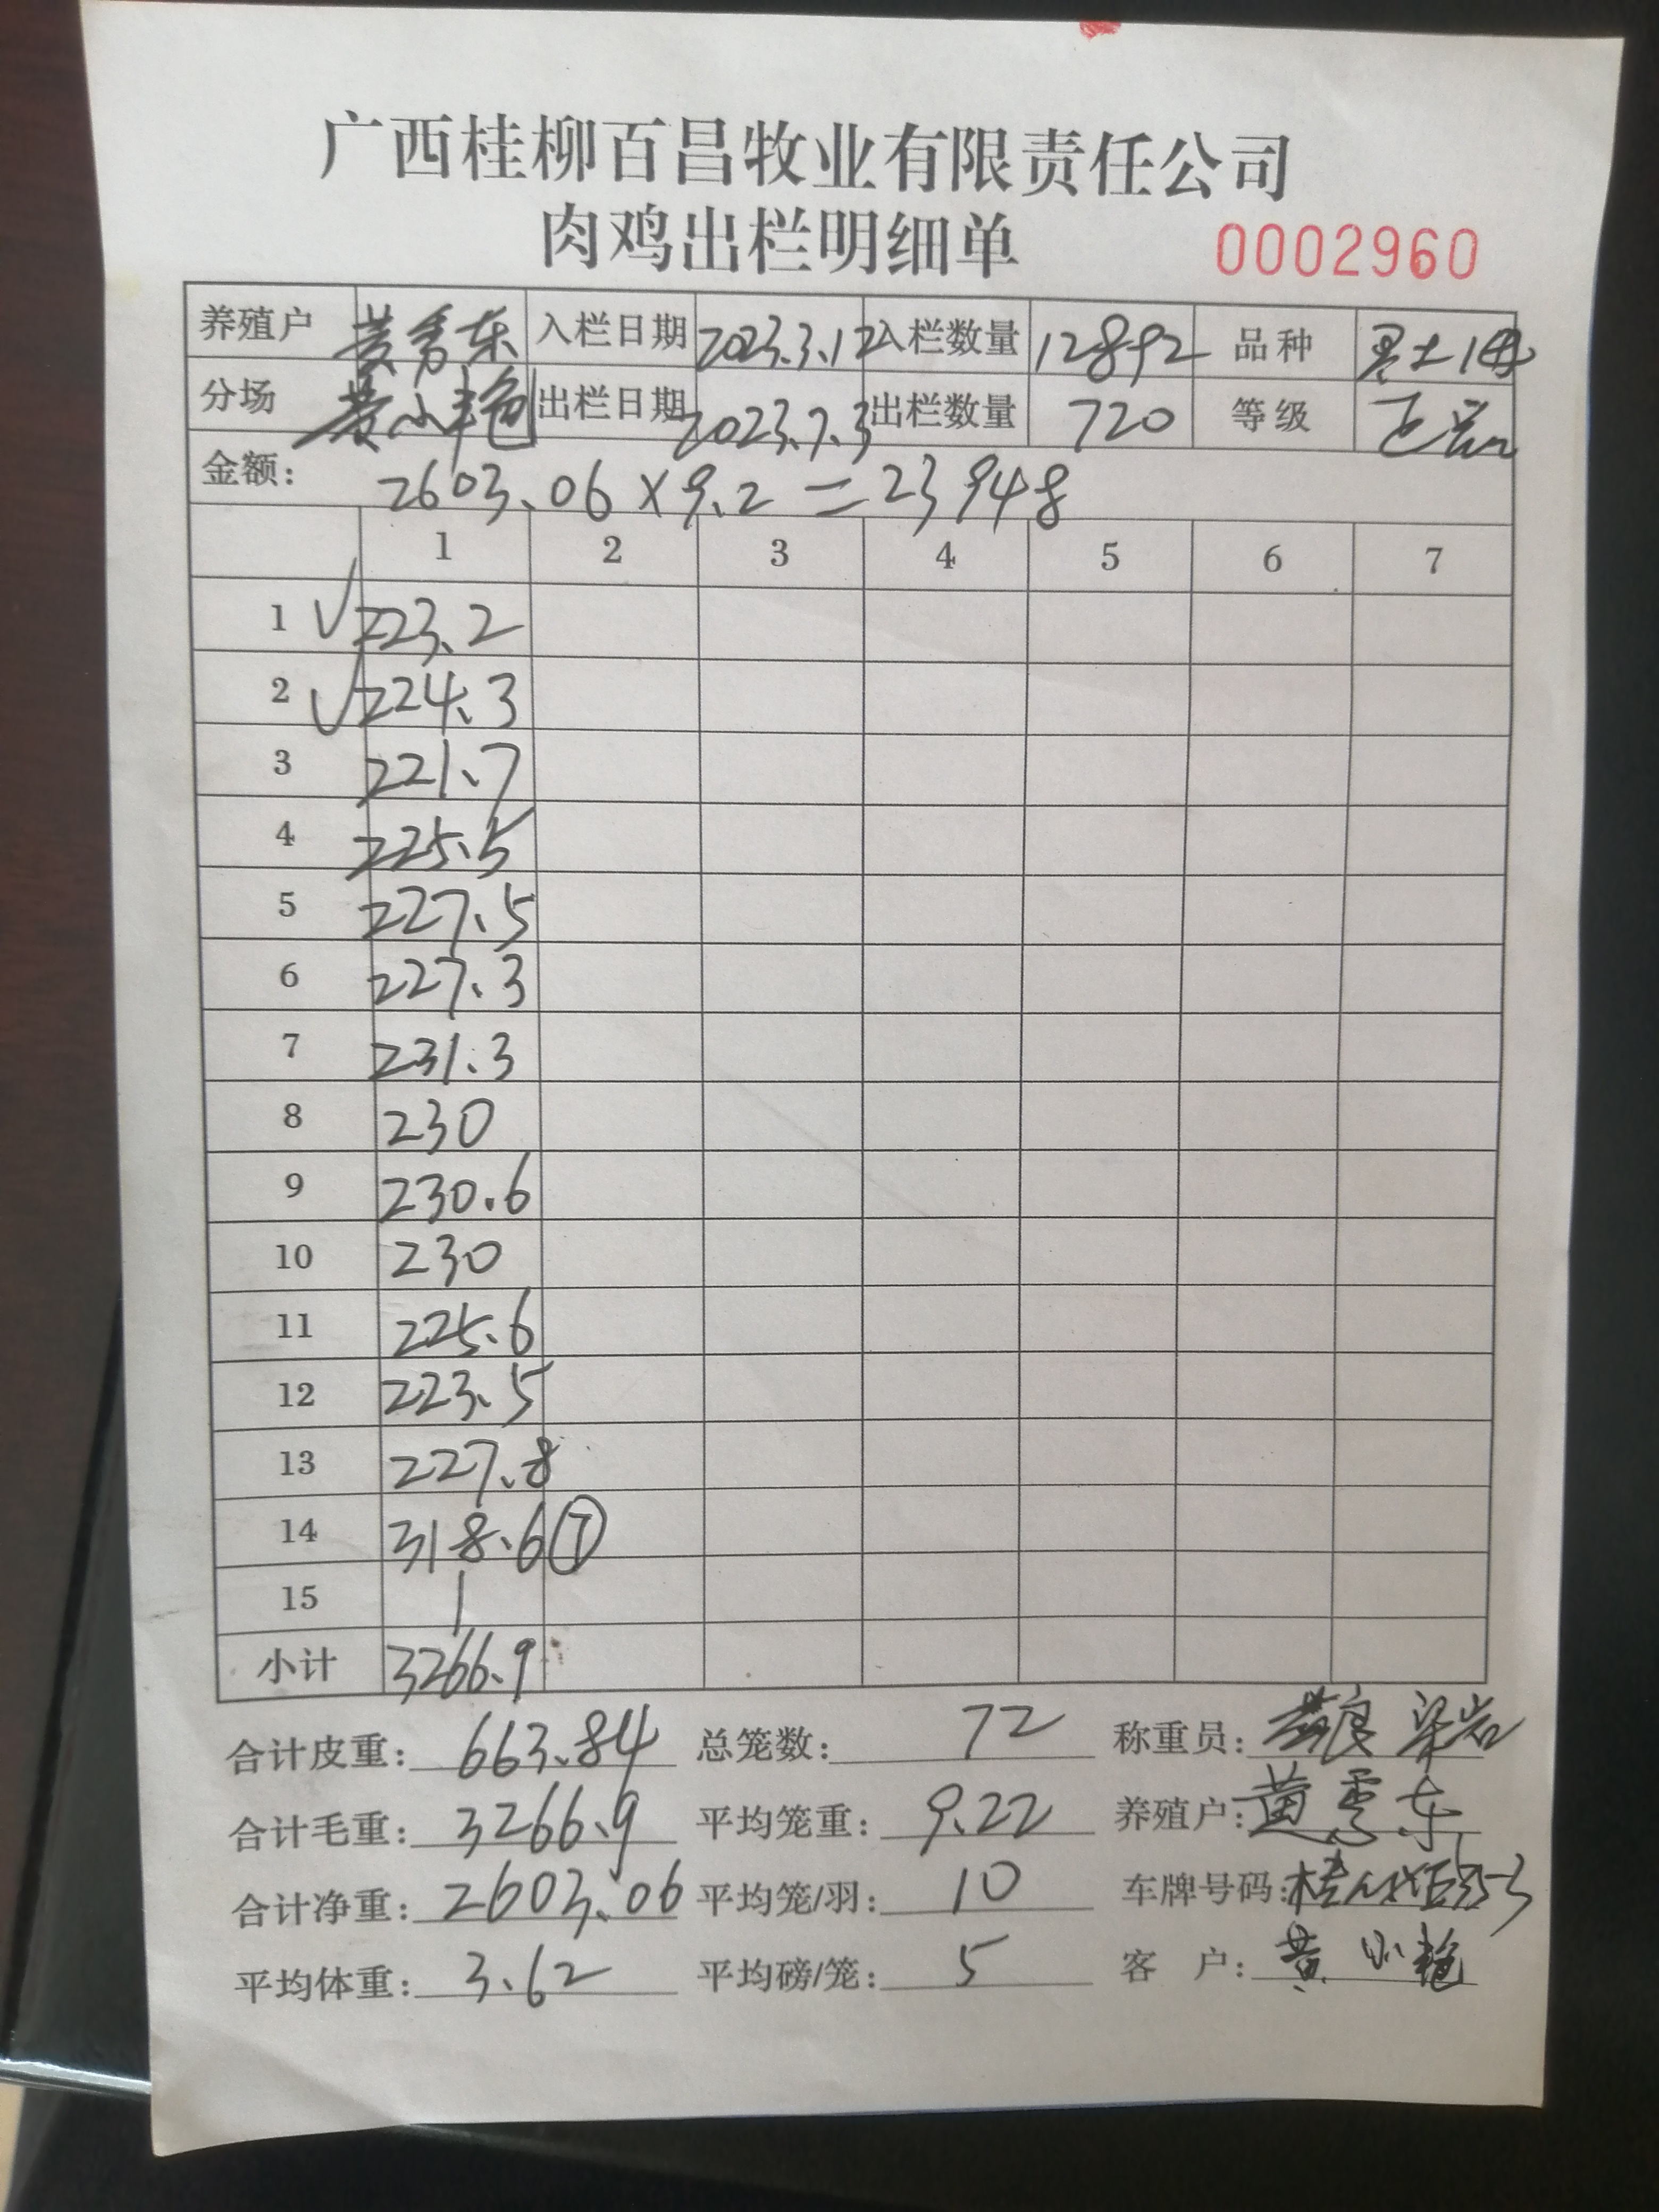 广西桂柳百昌牧业有限责任公司
肉鸡出栏明细单 0002960
养殖户 入栏日期 2023.3.12 入栏数量 12892 品种
分场 黄小艳 出栏日期 2023.7.3 出栏数量 720 等级
金额： 2603.06×9.2=23948
1 2 3 4 5 6 7
1 √ 223.2
2 √ 224.3
3 221.7
4 225.5
5 227.5
6 227.3
7 231.3
8 230
9 230.6
10 230
11 225.6
12 223.5
13 227.8
14 318.6 ⑦
15
小计 3266.9
合计皮重： 663.84 总笼数： 72 称重员：
合计毛重： 3266.9 平均笼重： 9.22 养殖户：
合计净重： 2603.06 平均笼/羽： 10 车牌号码：
平均体重： 3.62 平均磅/笼： 5 客户： 黄小艳